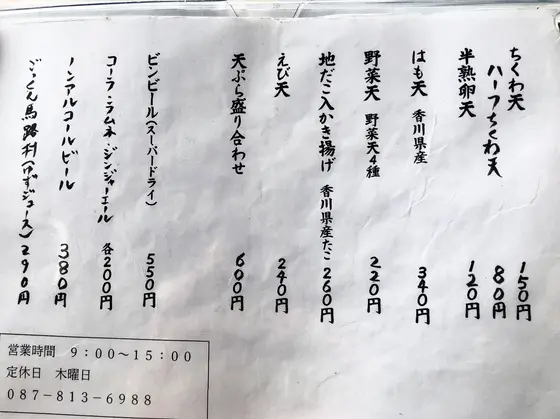 ちくわ天 150円
ハーフちくわ天 80円
半熟卵天 120円
はも天 香川県産 340円
野菜天 野菜天4種 220円
地だこ入かき揚げ 香川県産たこ 260円
えび天 240円
天ぷら盛り合わせ 600円
ビンビール(スーパードライ) 550円
コーラ・ラムネ・ジンジャーエール 各200円
ノンアルコールビール 380円
ごっくん馬路村(ゆずジュース) 290円
営業時間 9:00～15:00
定休日 木曜日
087-813-6988